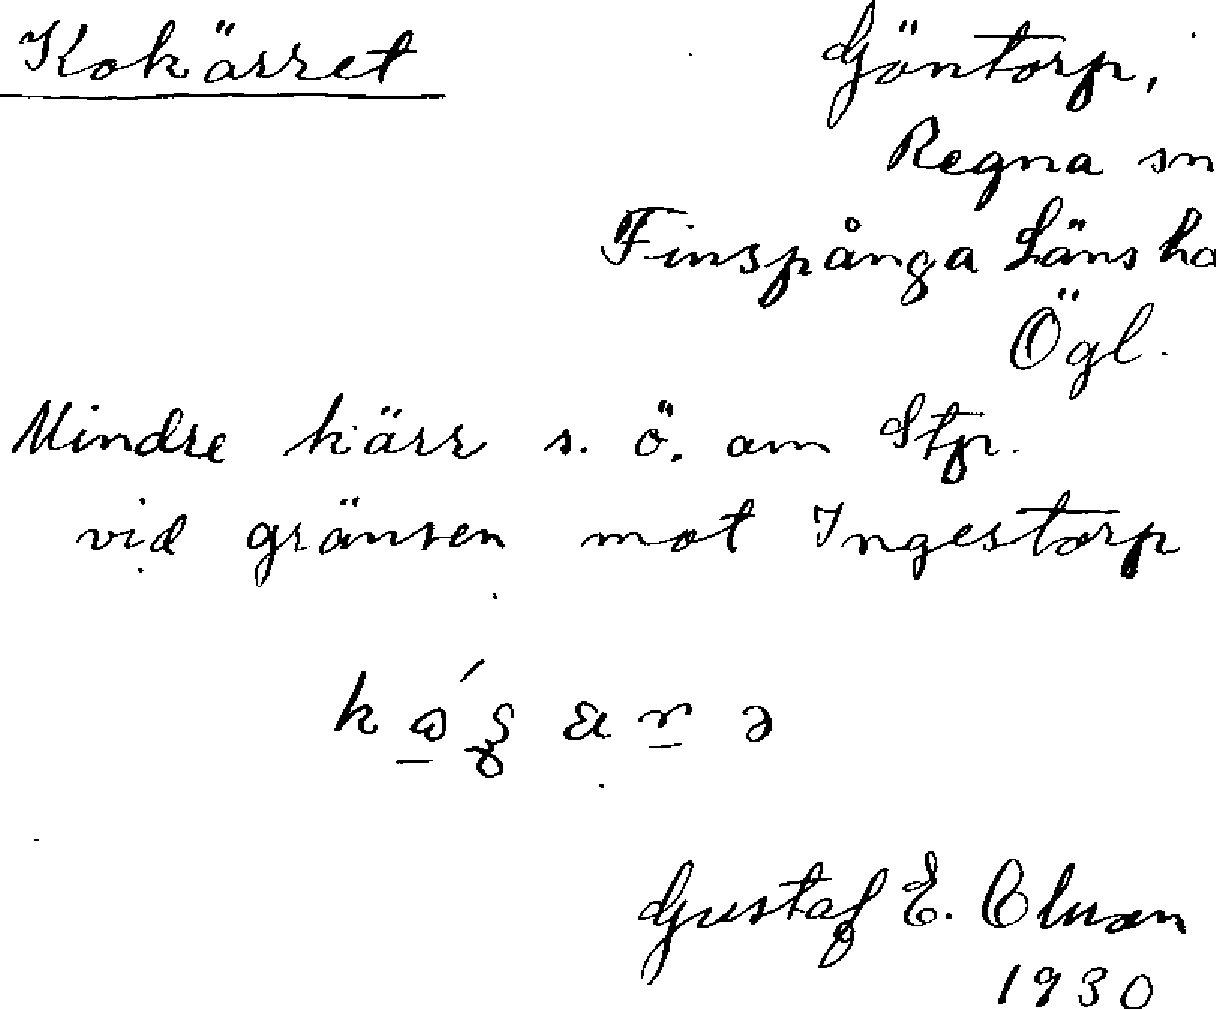 Kokärret
Göntorp,
Regna sn
Finspånga Läns hd
Ögl.
Mindre kärr s. ö. om Stp.
vid gränsen mot Ingestorp
Gustaf E. Olsson
1930